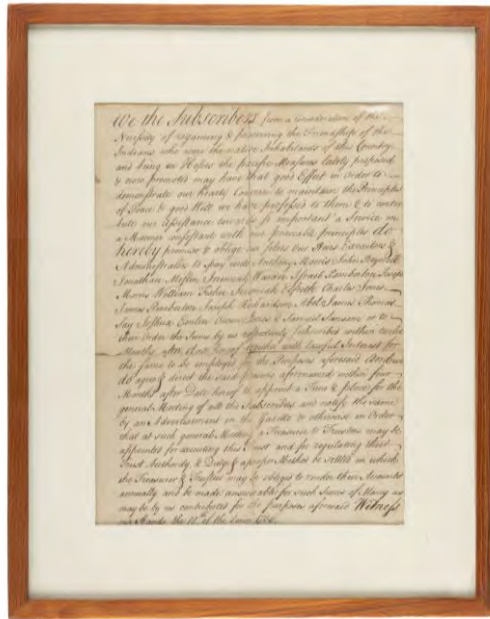 We the Subscribers from a Consideration of the
Necessity of regaining & preserving the Friendship of the
Indians who were the native Inhabitants of this Country
and being in Hopes the pacific Measures lately proposed
& now promoted may have that good Effect in Order to
demonstrate our hearty Concern to maintain the Principles
of Peace & good Will we have professed to them & to contri
bute our Assistance towards so important a Service in
a Manner consistent with our peaceable principles do
hereby promise & oblige our selves our Heirs Executors &
Administrators to pay unto Anthony Morris John Reynell
Jonathan Mifflin Jeremiah Warder Israel Pemberton Joseph
Morris William Fisher Jeremiah Elfreth Charles Jones
James Pemberton Joseph Richardson Abel James Thomas
Say Joshua Emlen Owen Jones & Samuel Sansom or to
their Order the Sums by us respectively Subscribed within twelve
Months after date hereof together with lawful Interest for
the same to be employed for the Purposes aforesaid And we
do agree & direct the said persons aforenamed within four
Months after Date hereof to appoint a Time & place for the
general Meeting of all the Subscribers and notify the same
by an Advertisement in the Gazette or otherwise in Order
that at such general Meeting a Treasurer & Trustees may be
appointed for executing this Trust and for regulating their
Trust Authority & Duty & a proper Method be settled in which
the Treasurer & Trustees may be obliged to render their Accounts
annually and be made answerable for such Sums of Money as
may be by us contributed for the purposes aforesaid Witness
our Hands the of the